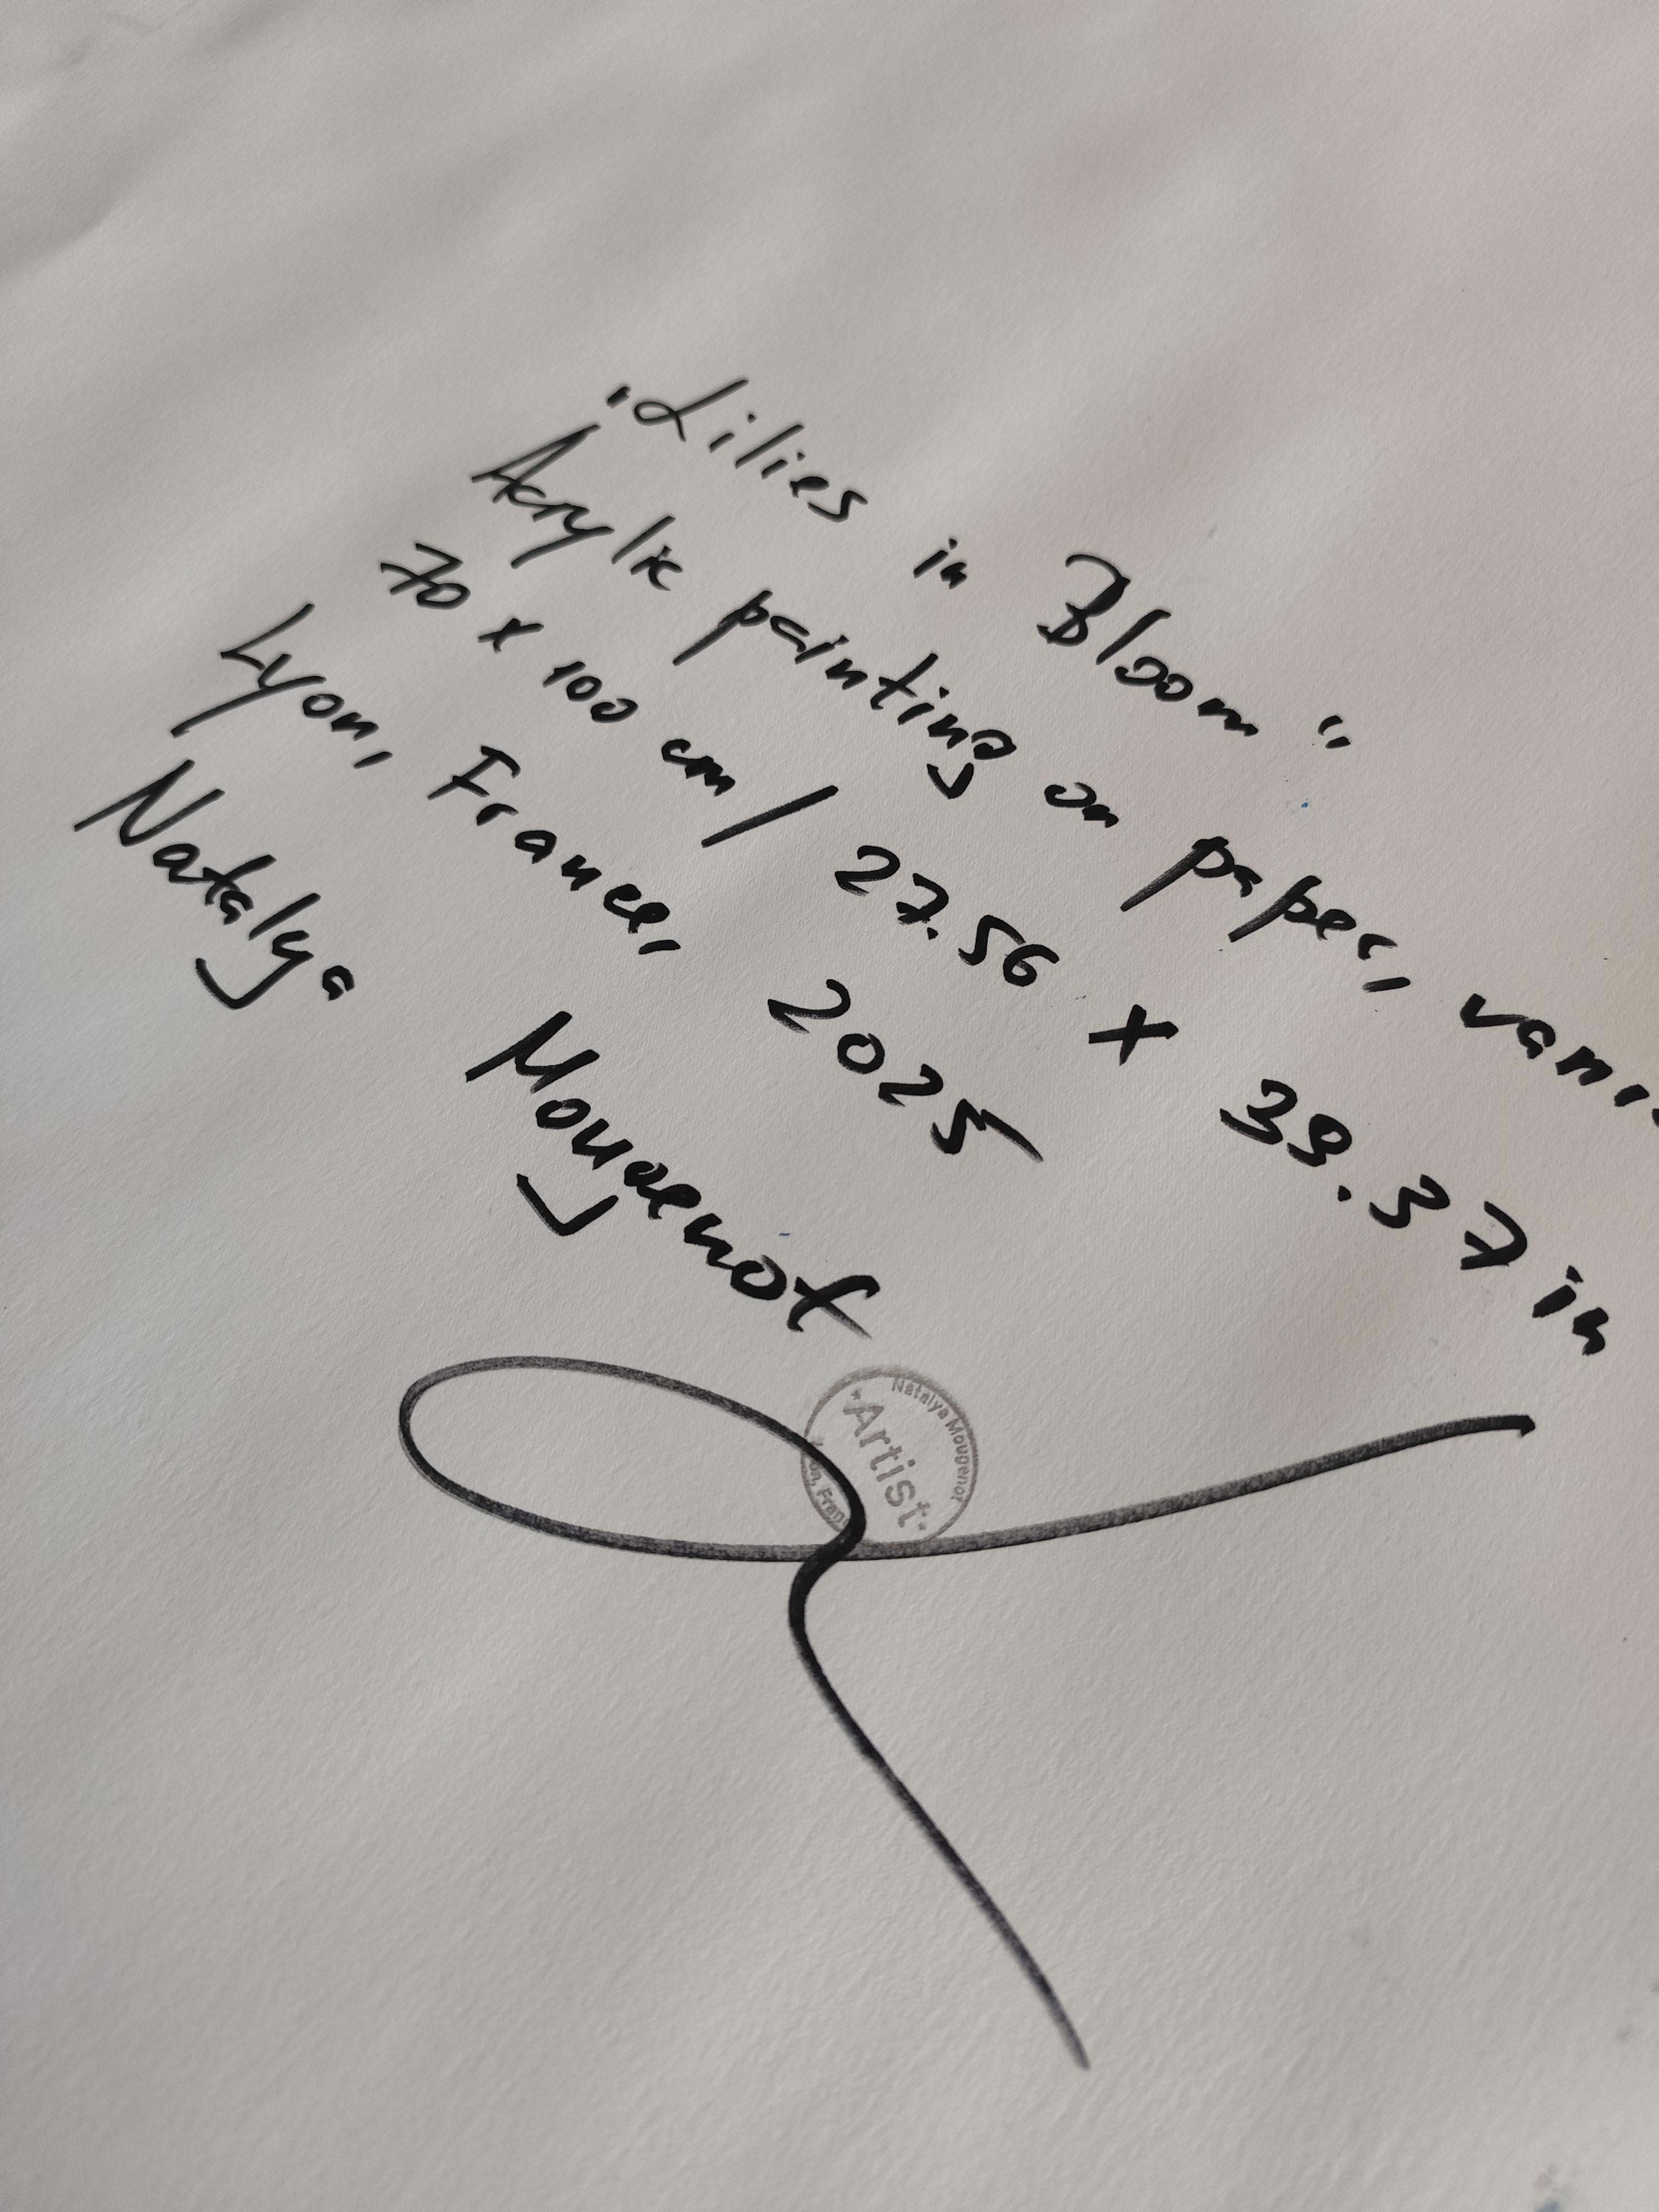 "Lilies in Bloom"
Acrylic painting on paper, varni
70 x 100 cm / 27.56 x 39.37 in
Lyon, France, 2025
Natalya Mougenot
Natalya Mougenot
"Artist"
on, Fran